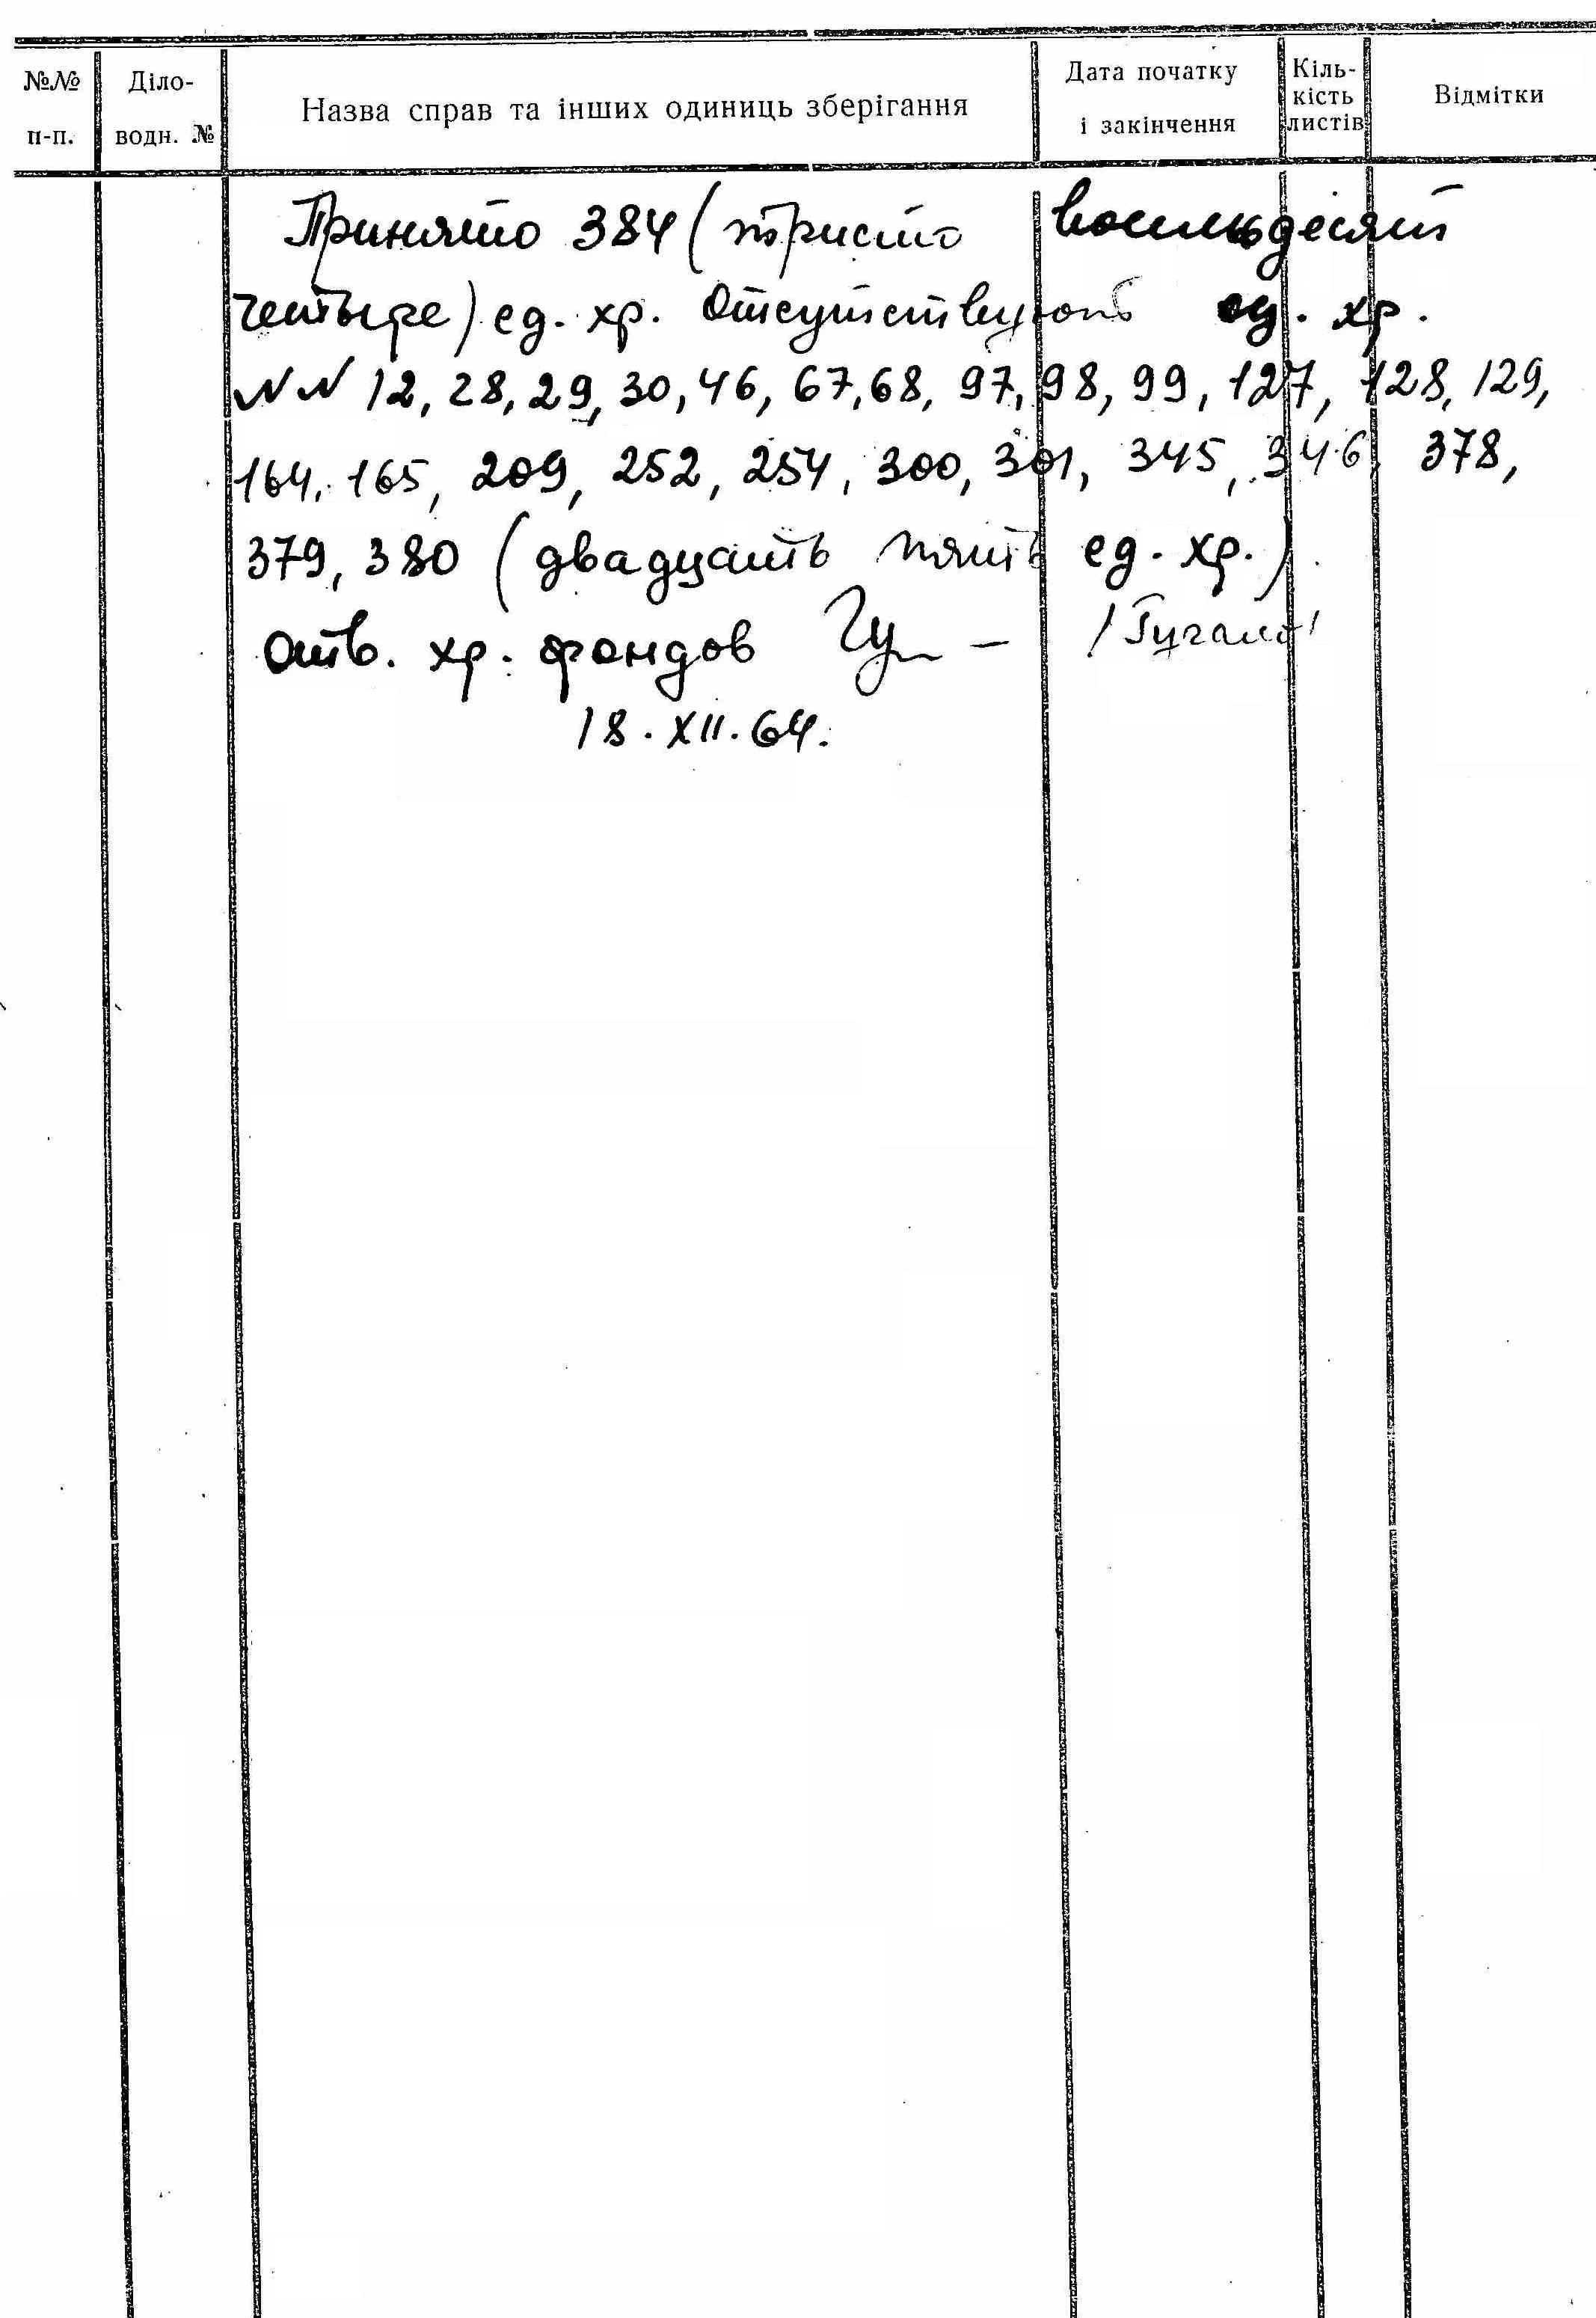 №№ п-п. Діло-водн. № Назва справ та інших одиниць зберігання Дата початку і закінчення Кіль-кість листів Відмітки
Принято 384 (триста восемьдесят
четыре) ед. хр. Отсутствуют ед. хр.
NN 12, 28, 29, 30, 46, 67, 68, 97, 98, 99, 127, 128, 129,
164, 165, 209, 252, 254, 300, 301, 345, 346, 378,
379, 380 (двадцать пять ед. хр.)
Отв. хр. фондов
18.XII.64.